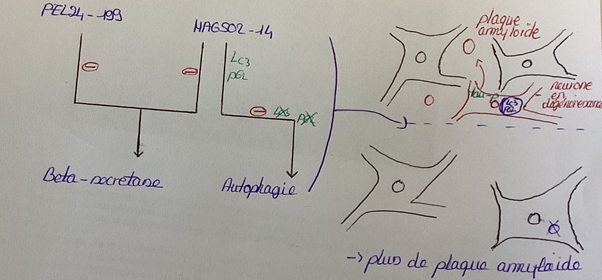 PEL24-199
MAGS02-14
LC3
p62
Beta-secretase
Autophagie
plaque
amyloïde
neurone
en
dégénérescence
LC3
p62
-> plus de plaque amyloïde